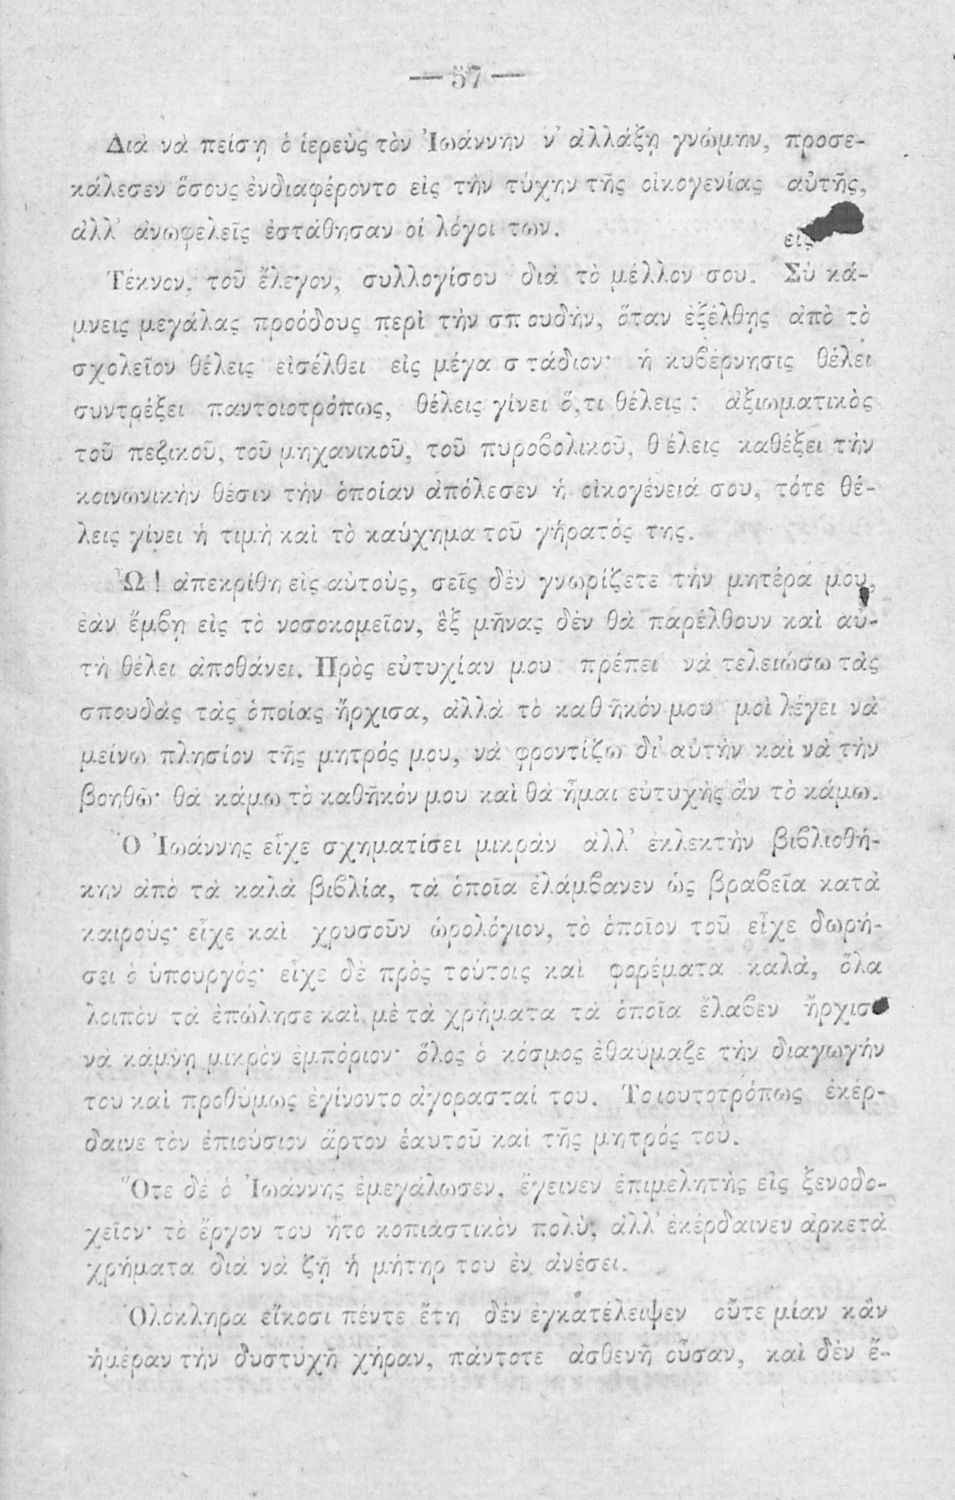 — 57 —
Διὰ νὰ πείσῃ ὁ ἱερεὺς τὸν Ἰωάννην ν' ἀλλάξῃ γνώμην, προσε-
κάλεσεν ὅσους ἐνδιαφέροντο εἰς τὴν τύχην τῆς οἰκογενίας αὐτῆς,
ἀλλ' ἀνωφελεῖς ἐστάθησαν οἱ λόγοι των. εἰς
Τέκνον, τοῦ ἔλεγον, συλλογίσου διὰ τὸ μέλλον σου. Σὺ κά-
μνεις μεγάλας προόδους περὶ τὴν σπουδὴν, ὅταν ἐξέλθῃς ἀπὸ τὸ
σχολεῖον θέλεις εἰσέλθει εἰς μέγα στάδιον· ἡ κυβέρνησις θέλει
συντρέξει παντοιοτρόπως, θέλεις γίνει ὅ,τι θέλεις : ἀξιωματικὸς
τοῦ πεζικοῦ, τοῦ μηχανικοῦ, τοῦ πυροβολικοῦ, θέλεις καθέξει τὴν
κοινωνικὴν θέσιν τὴν ὁποίαν ἀπόλεσεν ἡ οἰκογένειά σου, τότε θέ-
λεις γίνει ἡ τιμὴ καὶ τὸ καύχημα τοῦ γήρατός της.
Ὦ ! ἀπεκρίθη εἰς αὐτοὺς, σεῖς δὲν γνωρίζετε τὴν μητέρα μου,
ἐὰν ἔμβῃ εἰς τὸ νοσοκομεῖον, ἓξ μῆνας δὲν θὰ παρέλθουν καὶ αὐ-
τὴ θέλει ἀποθάνει. Πρὸς εὐτυχίαν μου πρέπει νὰ τελειώσω τὰς
σπουδὰς τὰς ὁποίας ἤρχισα, ἀλλὰ τὸ καθῆκόν μου μοὶ λέγει νὰ
μείνω πλησίον τῆς μητρός μου, νὰ φροντίζω δι' αὐτὴν καὶ νὰ τὴν
βοηθῶ· θὰ κάμω τὸ καθῆκόν μου καὶ θὰ ἦμαι εὐτυχὴς ἂν τὸ κάμω.
Ὁ Ἰωάννης εἶχε σχηματίσει μικρὰν ἀλλ' ἐκλεκτὴν βιβλιοθή-
κην ἀπὸ τὰ καλὰ βιβλία, τὰ ὁποῖα ἐλάμβανεν ὡς βραβεῖα κατὰ
καιρούς· εἶχε καὶ χρυσοῦν ὡρολόγιον, τὸ ὁποῖον τοῦ εἶχε δωρή-
σει ὁ ὑπουργός· εἶχε δὲ πρὸς τούτοις καὶ φορέματα καλὰ, ὅλα
λοιπὸν τὰ ἐπώλησε καὶ μὲ τὰ χρήματα τὰ ὁποῖα ἔλαβεν ἤρχισε
νὰ κάμνῃ μικρὸν ἐμπόριον· ὅλος ὁ κόσμος ἐθαύμαζε τὴν διαγωγήν
του καὶ προθύμως ἐγίνοντο ἀγορασταί του. Τοιουτοτρόπως ἐκέρ-
δαινε τὸν ἐπιούσιον ἄρτον ἑαυτοῦ καὶ τῆς μητρός του.
Ὅτε δὲ ὁ Ἰωάννης ἐμεγάλωσεν, ἔγεινεν ἐπιμελητὴς εἰς ξενοδο-
χεῖον· τὸ ἔργον του ἦτο κοπιαστικὸν πολὺ, ἀλλ' ἐκέρδαινεν ἀρκετὰ
χρήματα διὰ νὰ ζῇ ἡ μήτηρ του ἐν ἀνέσει.
Ὁλόκληρα εἴκοσι πέντε ἔτη δὲν ἐγκατέλειψεν οὔτε μίαν κἂν
ἡμέραν τὴν δυστυχῆ χήραν, πάντοτε ἀσθενῆ οὖσαν, καὶ δὲν ἔ-